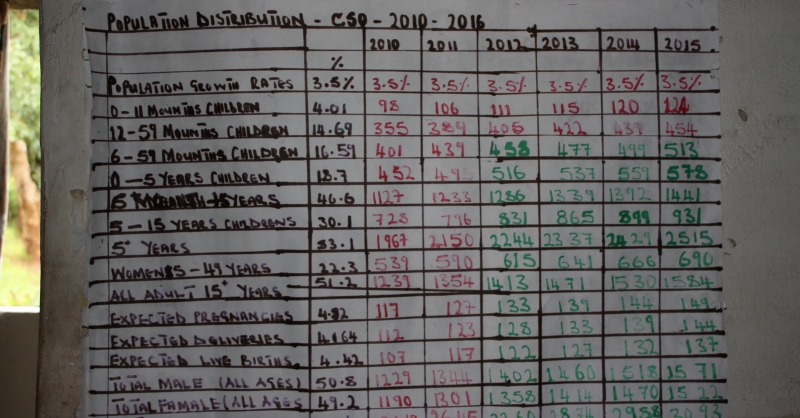 POPULATION DISTRIBUTION - CSO - 2010 - 2016
% 2010 2011 2012 2013 2014 2015
POPULATION GROWTH RATES 3.5% 3.5% 3.5% 3.5% 3.5% 3.5% 3.5%
0-11 MOUNTHS CHILDREN 4.01 98 106 111 115 120 124
12-59 MOUNTHS CHILDREN 14.69 355 389 406 422 439 454
6-59 MOUNTHS CHILDREN 16.59 401 439 458 477 499 513
0-5 YEARS CHILDREN 18.7 452 495 516 537 559 578
6 15 YEARS 46.6 1127 1233 1286 1339 1392 1441
5-15 YEARS CHILDRENS 30.1 728 796 831 865 899 931
5+ YEARS 83.1 1967 2150 2244 2337 2429 2515
WOMEN15-49 YEARS 22.3 539 590 615 641 666 690
ALL ADULT 15+ YEARS 51.2 1239 1354 1413 1471 1530 1584
EXPECTED PREGNANCIES 4.82 117 127 133 139 144 149
EXPECTED DELIVERIES 4.64 112 123 128 133 139 144
EXPECTED LIVE BIRTHS 4.42 107 117 122 127 132 137
TOTAL MALE (ALL AGES) 50.8 1229 1344 1402 1460 1518 1571
TOTAL FAMALE (ALL AGES 49.2 1190 1301 1358 1414 1470 1522